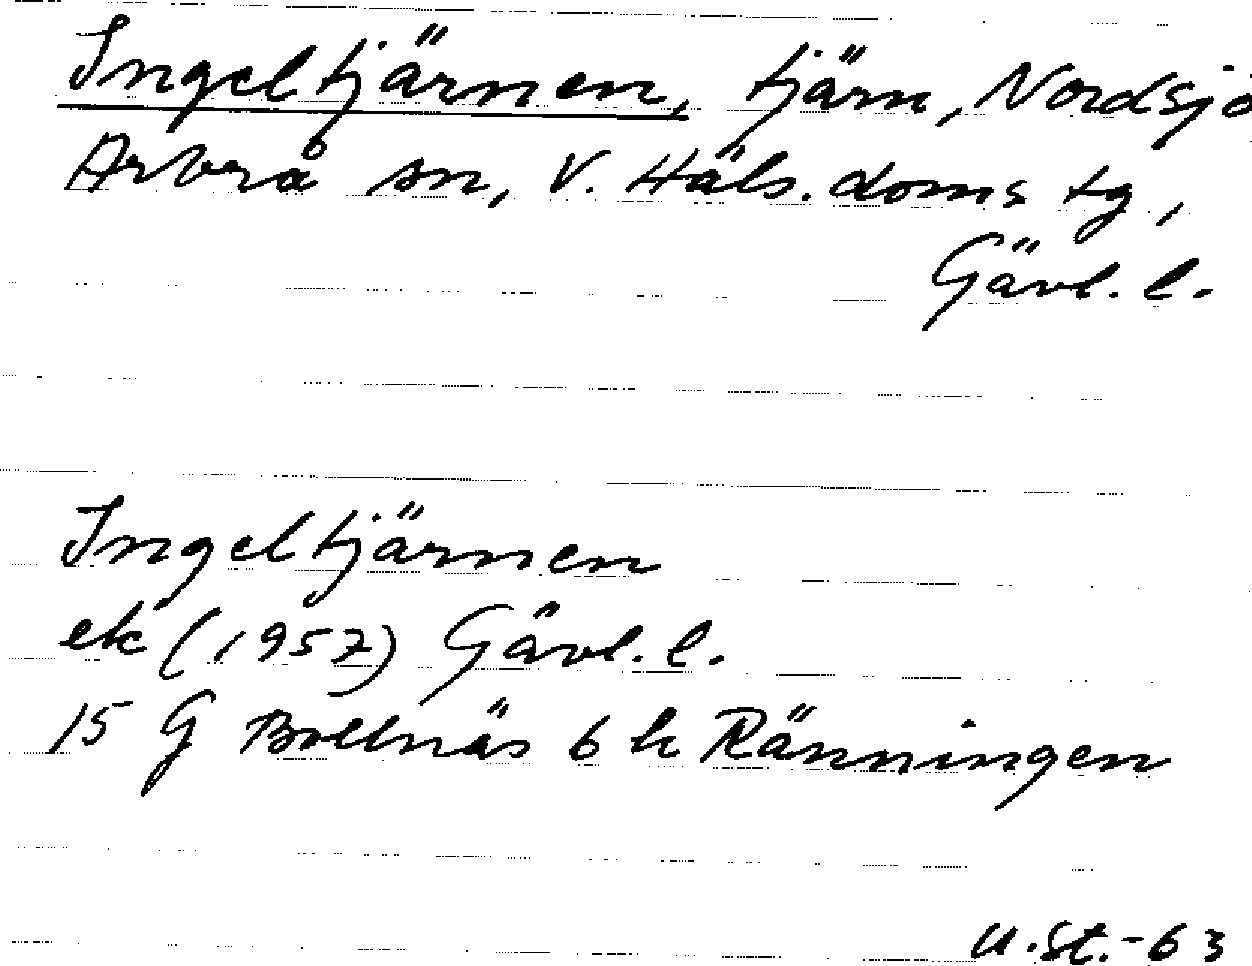 Ingeltjärnen, tjärn, Nordsjö
Arbrå sn, V. Häls. doms tg,
Gävl. l.
Ingeltjärnen
ek (1957) Gävl. l.
15 G Bollnäs 6 h Ränningen
U.St.-63